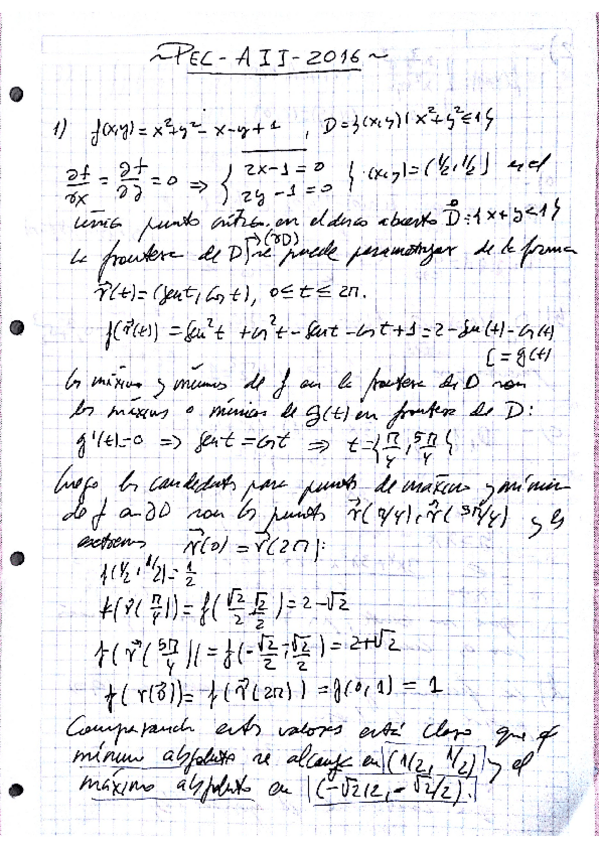 ~PEC-AII-2016~
1) f(x,y)=x²+y²-x-y+1 , D={(x,y)| x²+y²≤1}
∂f/∂x = ∂f/∂y = 0 ⇒ { 2x-1=0 2y-1=0 } (x,y)=(1/2,1/2) es el
único punto crítico en el disco abierto D:{x+y<1}
La frontera de D (∂D) se puede parametrizar de la forma
r⃗(t)=(sent, cost), 0≤t≤2π.
f(r⃗(t)) = sen²t + cos²t - sent - cost + 1 = 2-sen(t)-cos(t)
[= g(t)
los máximos y mínimos de f en la frontera de D son
los máximos o mínimos de g(t) en frontera de D:
g'(t)=0 ⇒ sent=cost ⇒ t={π/4, 5π/4}
luego los candidatos para puntos de máximo y mínimo
de f en ∂D son los puntos r⃗(π/4), r⃗(5π/4) y los
extremos r⃗(0) = r⃗(2π):
f(1/2, 1/2)=1/2
f(r⃗(π/4))= f(√2/2, √2/2) = 2-√2
f(r⃗(5π/4))= f(-√2/2, -√2/2) = 2+√2
f(r(0))= f(r⃗(2π)) = f(0,1) = 1
Comparando estos valores está claro que el
mínimo absoluto se alcanza en (1/2, 1/2) y el
máximo absoluto en (-√2/2, -√2/2).